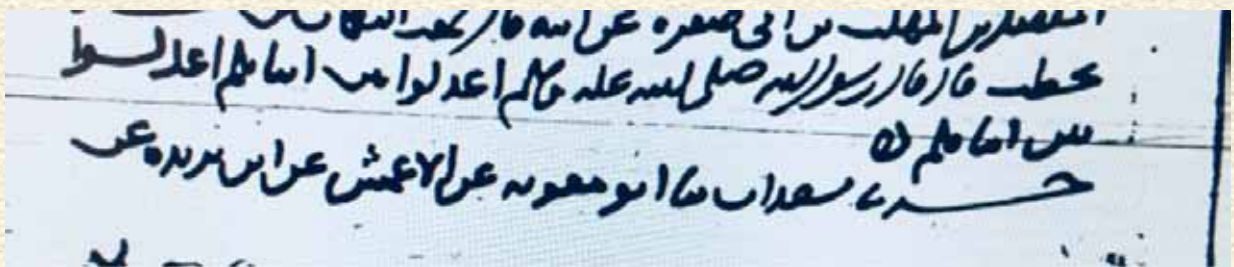 المفضل بن المهلب بن ابي صفره عن ابيه قال سمعت النعمان بن
يخطب قال قال رسول الله صلى الله عليه وسلم اعدلوا بين ابنائكم اعدلوا
بين ابنائكم
حدثنا سعدان نا ابو معويه عن الاعمش عن ابن بريده عن